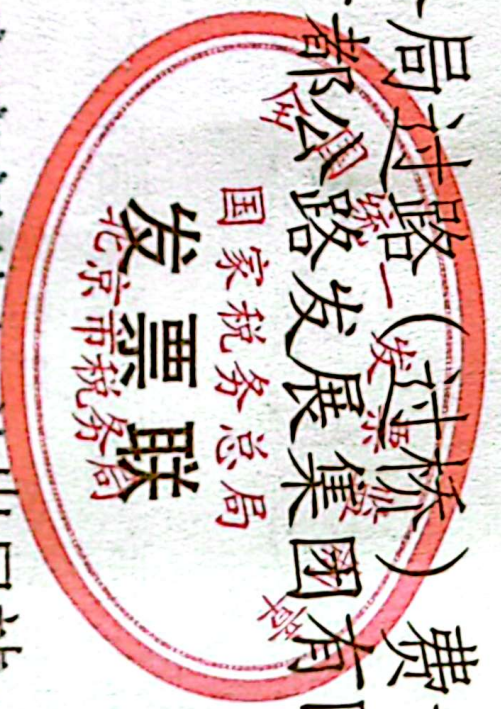 局过路(过桥)费
都公路发展集团有
全国统一发票监制章
国家税务总局
发票联
北京市税务局